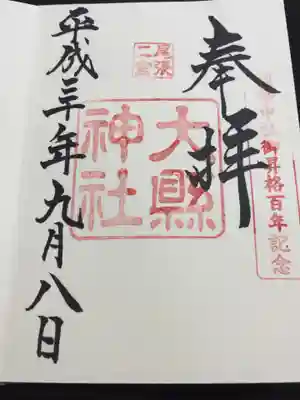 奉拝
御昇格百年記念
尾張
二宮
大縣
神社
平成三十年九月八日